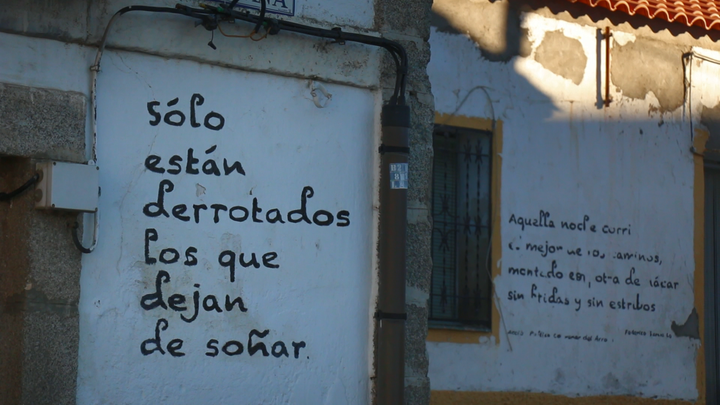 Sólo
están
derrotados
los que
dejan
de soñar.
Aquella noche corrí
el mejor de los caminos,
montado en potra de nácar
sin bridas y sin estribos